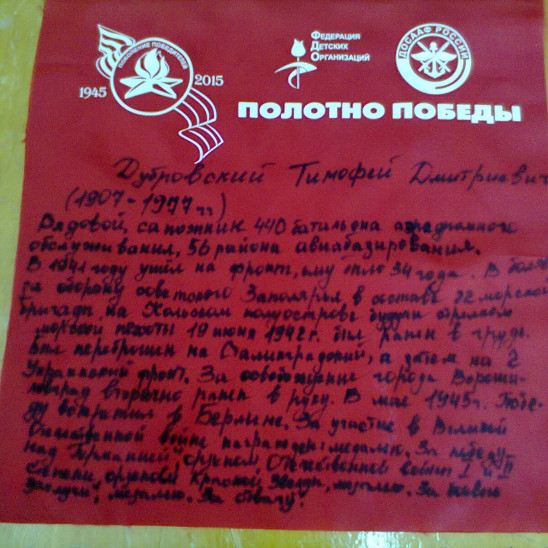 ПОКОЛЕНИЕ ПОБЕДИТЕЛЕЙ
1945 2015
ФЕДЕРАЦИЯ
ДЕТСКИХ
ОРГАНИЗАЦИЙ
ДОСААФ РОССИИ
ПОЛОТНО ПОБЕДЫ
Дубровский Тимофей Дмитриевич
(1907-1977 гг)
Рядовой, сапожник 440 батальона аэродромного
обслуживания, 56 района авиабазирования.
В 1941 году ушёл на фронт, ему было 34 года. В боях
за оборону советского Заполярья, в составе 72 морской
бригады на Кольском полуострове будучи стрелком
морской пехоты 19 июня 1942 г. был ранен в грудь.
Был переброшен на Сталинградский, а затем на 2
Украинский фронт. За освобождение города Вороши-
ловград вторично ранен в руку. В мае 1945 г. Побе-
ду встретил в Берлине. За участие в Великой
Отечественной войне награжден: медалью "За победу
над Германией" орденом Отечественной войны I и II
степени, орденом Красной Звезды, медалью "За боевые
заслуги", медалью "За отвагу".